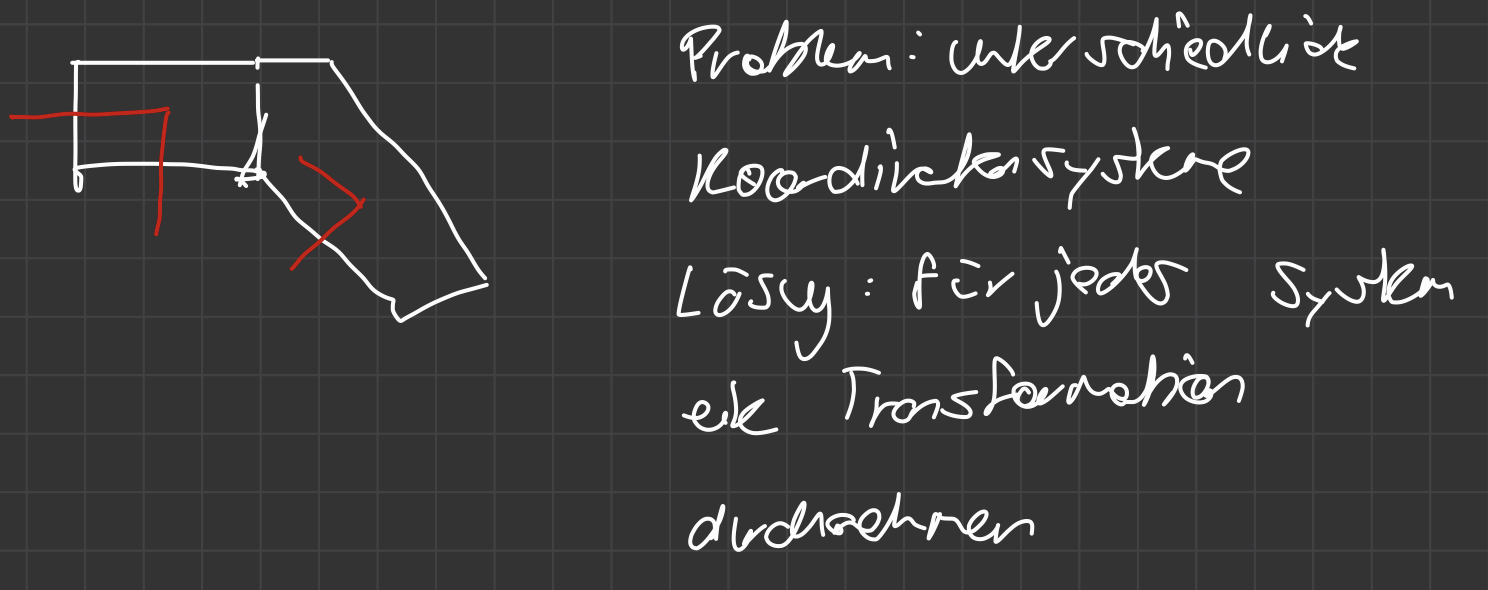 Problem: unterschiedliche
Koordinatensysteme
Lösung: für jedes System
eine Transformation
durchnehmen